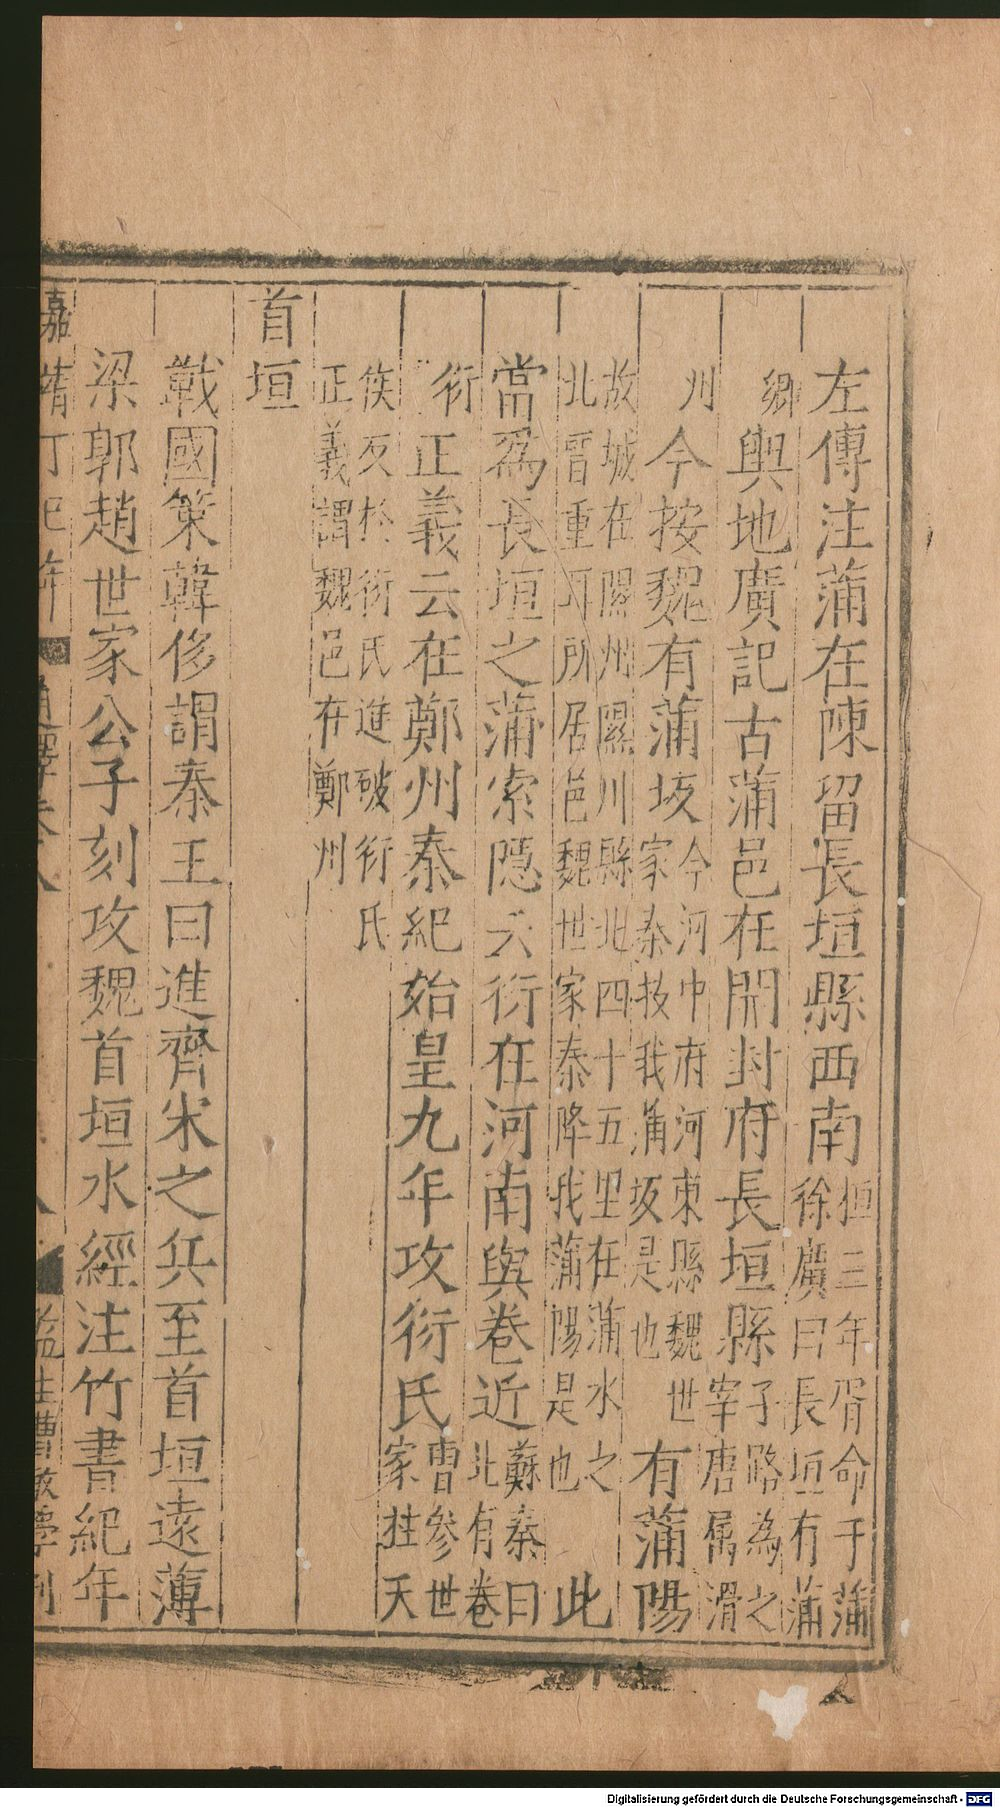 左傳注蒲在陳留長垣縣西南桓三年胥命于蒲徐廣曰長垣有蒲
鄉輿地廣記古蒲邑在開封府長垣縣子路為之宰唐屬滑
州今按魏有蒲坂今河中府河東縣魏世家秦技我蒲坂是也有蒲陽
故城在隰州隰川縣北四十五里在蒲水之北晉重耳所居邑魏世家秦降我蒲陽是也此
當爲長垣之蒲索隱云衍在河南與卷近蘇秦曰北有卷
衍正義云在鄭州秦紀始皇九年攻衍氏曹參世家拄天
侯反於衍氏進破衍氏正義謂魏邑在鄭州
首垣
戰國策韓侈謂秦王曰進齊宋之兵至首垣遠薄
梁郭趙世家公子刻攻魏首垣水經注竹書紀年
嘉靖丁巳年
通釋卷八
八
監生曹敏學刊
Digitalisierung gefördert durch die Deutsche Forschungsgemeinschaft - DFG